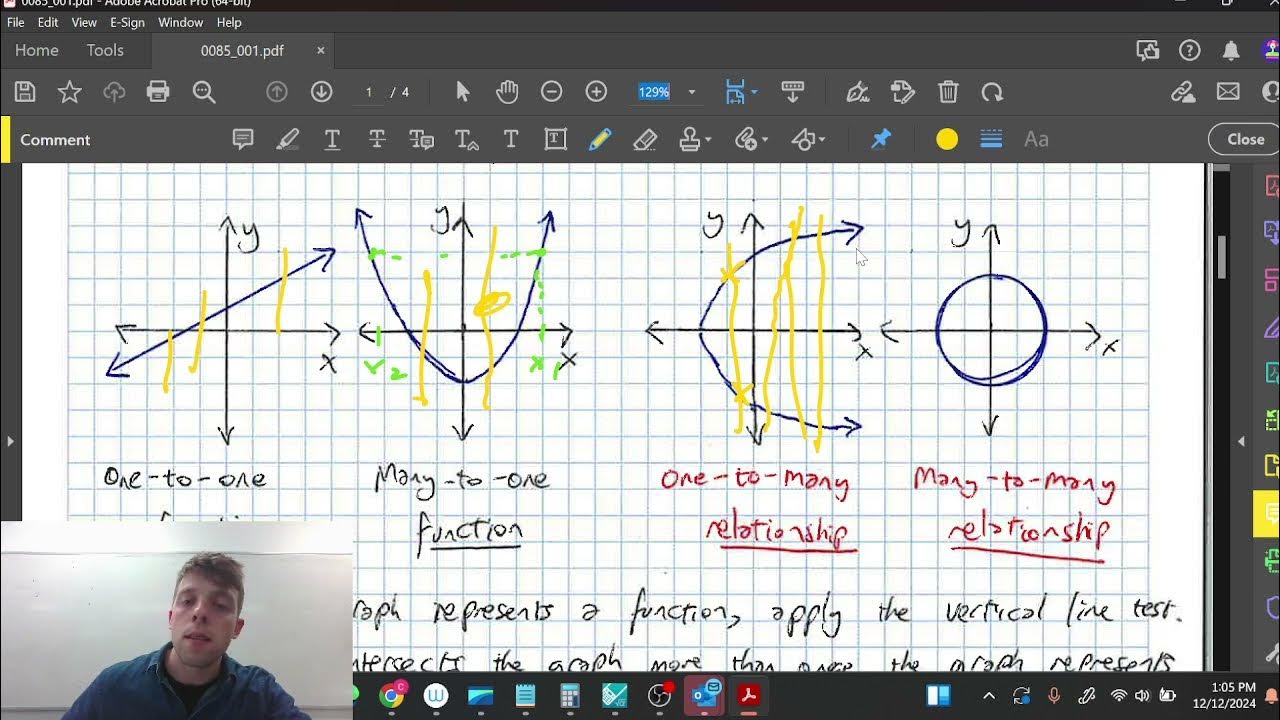 0085_001.pdf - Adobe Acrobat Pro (64-bit)
File Edit View E-Sign Window Help
Home Tools 0085_001.pdf ×
1 / 4 129%
Comment T T T T Aa Close
y y y y
x x x x
x2 x1
One-to-one Many-to-one One-to-many Many-to-many
function relationship relationship
graph represents a function, apply the vertical line test.
intersects the graph more than once the graph represents
1:05 PM
12/12/2024